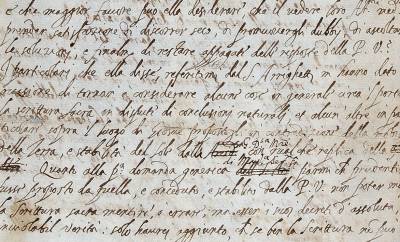 e che maggior favore può ella desiderare che il vedere loro
prender satisfazione di discorrer seco, di promuovergli dubbi, di ascoltar
le soluzioni, e finalm. di restare appagati delle risposte della P. V.
I particolari che ella disse referitimi dal S. Arrighetti, mi hanno dato
occasione di tornar a considerare alcune cose in generale circa 'l portar
la scrittura sacra in dispute di conclusioni naturali, et alcun altre in par
ticolari sopra 'l luogo di Giosue propostoli in contradizione della
della Terra, e stabilità del sole dalla con qualche replica della
Quanto alla p.a domanda generica parmi che prudentis
fusse proposto da quella e conceduto e stabilito dalla P. V. non poter mai
la scrittura sacra mentire, o errare, ma esser i suoi decreti d'assoluta,
inviolabil verità: solo haurei aggiunto che se ben la Scrittura non può